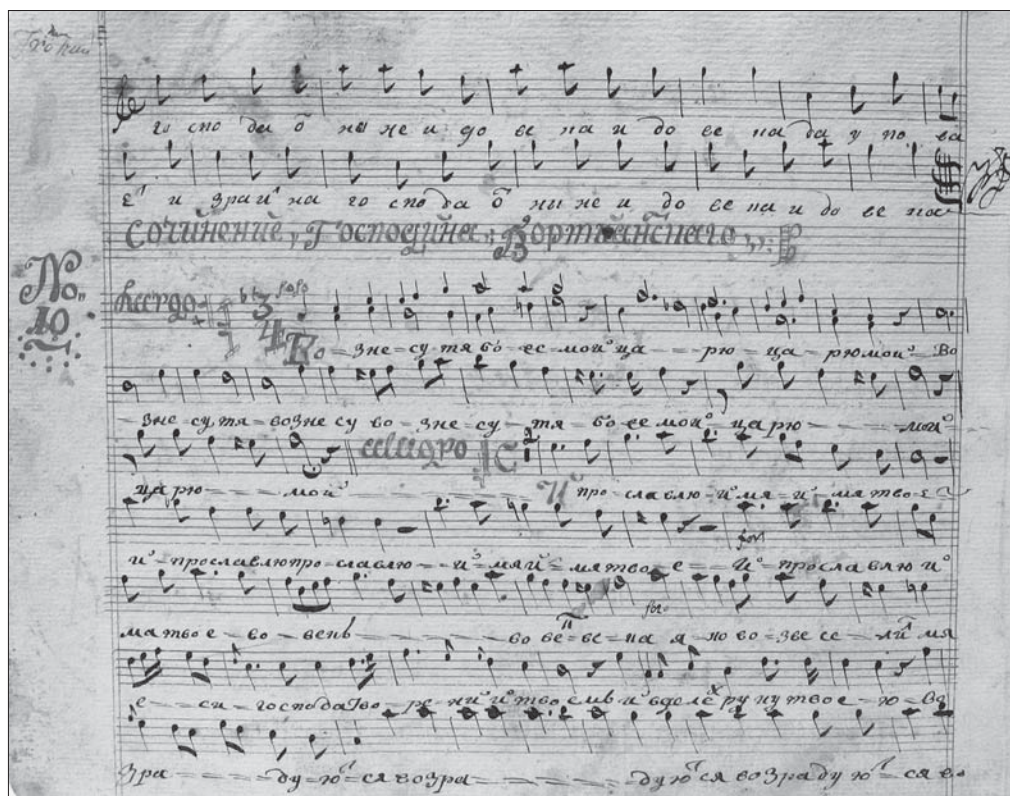 го спо да о ны не и до ве ка и до ве ка да у по ва
е и зраи на го спо да о ны не и до ве ка и до ве ка
Сочинение Господина Бортнянскаго
No. 10 Largo 3/4 Во - зне - су - тя бо - ес - мой ца - - - рю - ца - рю мой - Во
- зне су тя - возне су во - зне - су - тя - бо - ее мой - ца рю - - - - мой
царю - - - мой
Allegro C И про - славлю - имя - и - мя тво - е
и - прославлю про - славлю - и - мя и - мя тво - е - И - прославлю и
for
мя твое - во - векъ - - - - - во ве - ве - ка я - ко во - звесе - ли мя
for
е - - си - господа тво - ре - ни и тво емъ и вделе ру ку твое - ю - во
зра - - - - ду - ю - ся возра - - - - - дуюся возрадую - ся во